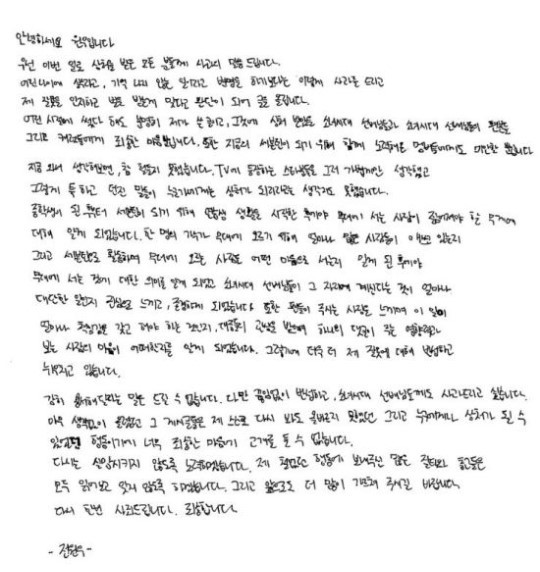 안녕하세요 원우입니다
우선 이번 일로 상처를 받은 모든 분들께 사과의 말씀 드립니다.
어린나이에 썼다고, 기억 나지 않는 일이라고 변명을 하기보다는 이렇게 사과를 드리고
제 잘못을 인지하고 반성 하는게 맞다고 판단이 되어 글을 올립니다.
어떤 시점에 썼다 해도 분명히 제가 쓴 글이고, 그것에 상처 받았을 소녀시대 선배님들과 소녀시대 선배님들의 팬분들
그리고 캐럿들에게 죄송한 마음뿐입니다. 또한 지금의 세븐틴이 되기 위해 함께 노력해온 멤버들에게도 미안할 뿐입니다
지금 와서 생각해보면, 참 철없지 못했습니다. TV에 등장하는 스타분들을 그저 가볍게만 생각했고
그렇게 툭 하고 던진 말들이 누군가에게는 상처가 되리라고는 생각지도 못했습니다.
중학생이 된 후부터 세븐틴이 되기 위해 연습생 생활을 시작한 후에야 무대에 서는 사람이 짊어져야 할 무게에
대해 알게 되었습니다. 한 명의 가수가 무대에 오르기 위해 얼마나 많은 사람들이 애쓰고 있는지
그리고 세븐틴으로 활동하며 무대에 오르는 사람은 어떤 마음으로 서는지 알게 된 후에야
무대에 서는 것에 대한 의미를 알게 되었고 소녀시대 선배님들이 그 자리에 계신다는 것이 얼마나
대단한 일인지 관심을 느끼고, 존경하게 되었습니다 또한 팬들이 주시는 사랑을 느끼며 이 일이
얼마나 책임감을 갖고 해야 하는 것인지, 대중의 관심을 받으며 하나의 댓글이 주는 영향력과
보는 사람의 마음이 어떠한지를 알게 되었습니다. 그렇기에 더욱 더 제 잘못에 대해 반성하고
뉘우치고 있습니다.
감히 용서해달라는 말은 드릴 수 없습니다. 다만 끊임없이 반성하고, 소녀시대 선배님들께도 사과드리고 싶습니다.
아무 생각없이 올렸던 그 게시글들은 제 스스로 다시 봐도 올바르지 못했던 그리고 누군가에게나 상처가 될 수
있었던 행동이기에 너무 죄송한 마음에 고개를 들 수 없습니다.
다시는 실망시키지 않도록 노력하겠습니다. 제 철없던 행동에 보내주신 많은 질타와 충고들은
모두 읽어보고 잊지 않도록 하겠습니다. 그리고 앞으로도 더 많이 가르쳐 주시길 바랍니다.
다시 한번 사죄드립니다. 죄송합니다
- 전원우 -